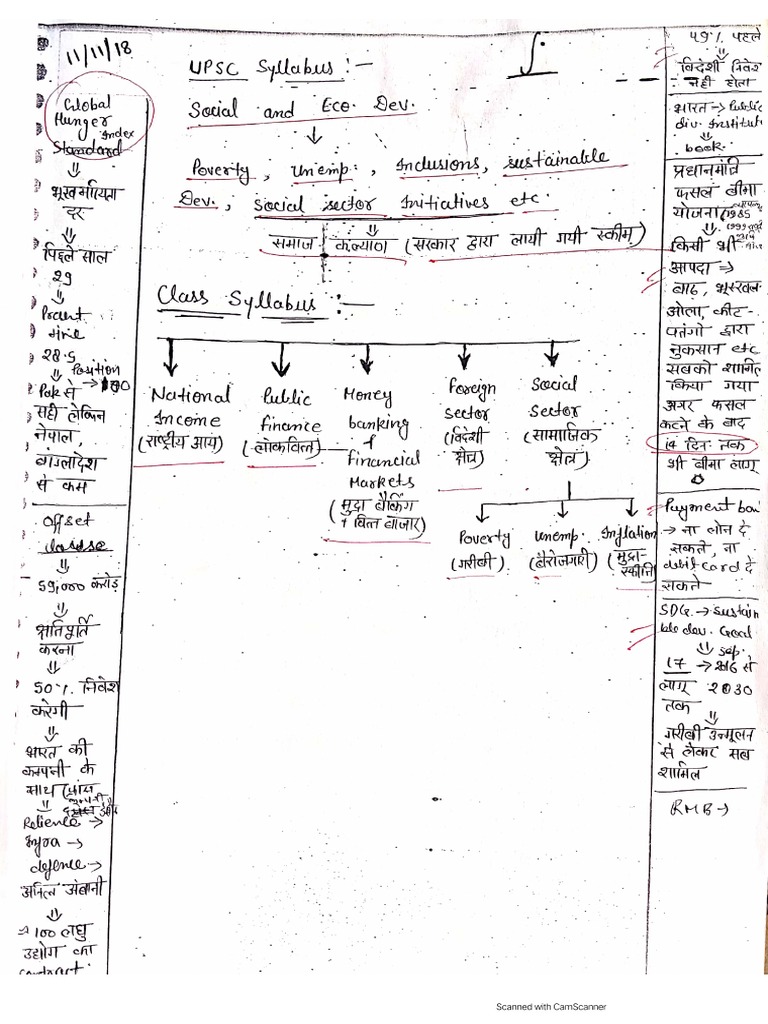 11/11/18
Global
Hunger
Index
Standard
⇓
भूखमरियता
दर
⇓
पिछले साल
29
⇓
Present
28.5
⇓ Position
Pak से → 100
सही लेकिन
नेपाल,
बांग्लादेश
से कम
offset
clause
⇓
59,000 करोड़
⇓
क्षतिपूर्ति
करना
⇓
50% निवेश
करेगी
⇓
भारत की
कम्पनी के
साथ
⇓
Relience →
Infra →
defence →
अनिल अंबानी
⇓
→ 100 लघु
उद्योग का
contract
UPSC Syllabus :—
Social and Eco. Dev.
↓
Poverty, Unemp., Inclusions, sustainable
Dev., Social sector Initiatives etc.
⇓
समाज कल्याण (सरकार द्वारा लायी गयी स्कीम)
Class Syllabus :—
National
Income
(राष्ट्रीय आय)
Public
finance
(लोकवित्त)
Money
banking
+
financial
Markets
(मुद्रा बैंकिंग
+ वित्त बाजार)
Foreign
sector
(विदेशी
क्षेत्र)
Social
sector
(सामाजिक
क्षेत्र)
Poverty
(गरीबी)
Unemp.
(बेरोजगारी)
Inflation
(मुद्रा-
स्फीति)
49% पहले
⇓
विदेशी निवेश
नही होता
भारत → Public
div. Institut
⇓
book.
प्रधानमंत्रि
फसल बीमा
योजना (1985
⇓ 1999
किसी भी
आपदा ⇒
बाढ़, भूस्खलन
ओला, कीट-
पतंगो द्वारा
नुकसान etc
सबको शामिल
किया गया
अगर फसल
कटने के बाद
14 दिन तक
भी बीमा लागू
Payment ban
→ ना लोन दे
सकते, ना
debit card दे
सकते
SDG → sustain
ble dev. Goal
⇓ sep.
17 → 2016 से
लागू 2030
तक
⇓
गरीबी उन्मूलन
से लेकर सब
शामिल
RMB →
Scanned with CamScanner